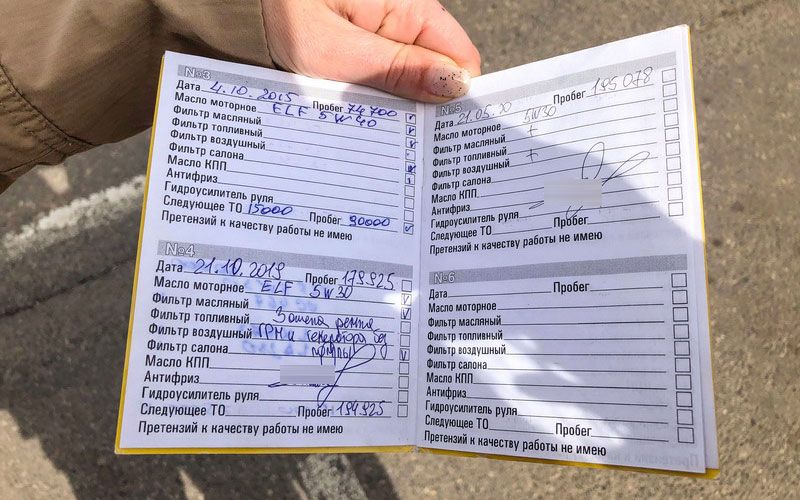 №3
Дата 4.10.2015 Пробег 74700
Масло моторное ELF 5W40
Фильтр масляный
Фильтр топливный
Фильтр воздушный
Фильтр салона
Масло КПП
Антифриз
Гидроусилитель руля
Следующее ТО 15000 Пробег 90000
Претензий к качеству работы не имею
№4
Дата 21.10.2019 Пробег 179925
Масло моторное ELF 5W30
Фильтр масляный
Фильтр топливный Замена ремня
Фильтр воздушный ГРМ и генератора без
Фильтр салона помпы
Масло КПП
Антифриз
Гидроусилитель руля
Следующее ТО Пробег 194925
Претензий к качеству работы не имею
№5
Дата 21.05.20 Пробег 195078
Масло моторное 5W30
Фильтр масляный +
Фильтр топливный
Фильтр воздушный +
Фильтр салона
Масло КПП
Антифриз
Гидроусилитель руля
Следующее ТО Пробег
Претензий к качеству работы не имею
№6
Дата Пробег
Масло моторное
Фильтр масляный
Фильтр топливный
Фильтр воздушный
Фильтр салона
Масло КПП
Антифриз
Гидроусилитель руля
Следующее ТО Пробег
Претензий к качеству работы не имею